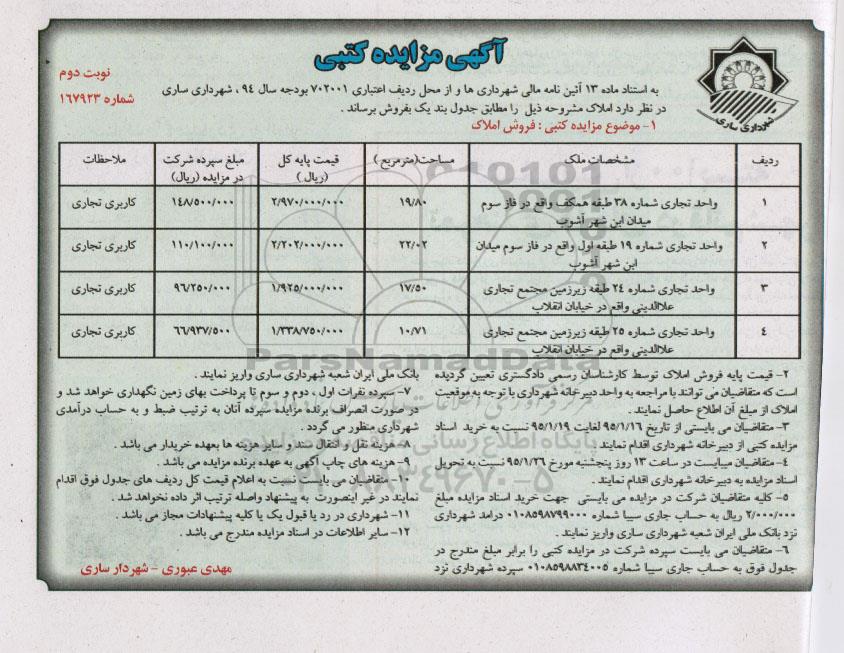 آگهی مزایده کتبی
نوبت دوم
شماره ۱۶۷۹۲۳
شهرداری ساری
به استناد ماده ۱۳ آئین نامه مالی شهرداری ها و از محل ردیف اعتباری ۷۰۲۰۰۱ بودجه سال ۹۴ ، شهرداری ساری
در نظر دارد املاک مشروحه ذیل را مطابق جدول بند یک بفروش برساند .
۱- موضوع مزایده کتبی : فروش املاک
ردیف مشخصات ملک مساحت(مترمربع) قیمت پایه کل (ریال) مبلغ سپرده شرکت در مزایده (ریال) ملاحظات
۱ واحد تجاری شماره ۳۸ طبقه همکف واقع در فاز سوم ۱۹/۸۰ ۲/۹۷۰/۰۰۰/۰۰۰ ۱۴۸/۵۰۰/۰۰۰ کاربری تجاری
میدان ابن شهر آشوب
۲ واحد تجاری شماره ۱۹ طبقه اول واقع در فاز سوم میدان ۲۲/۰۲ ۲/۲۰۲/۰۰۰/۰۰۰ ۱۱۰/۱۰۰/۰۰۰ کاربری تجاری
ابن شهر آشوب
۳ واحد تجاری شماره ۲۴ طبقه زیرزمین مجتمع تجاری ۱۷/۵۰ ۱/۹۲۵/۰۰۰/۰۰۰ ۹۶/۲۵۰/۰۰۰ کاربری تجاری
علاالدینی واقع در خیابان انقلاب
۴ واحد تجاری شماره ۲۵ طبقه زیرزمین مجتمع تجاری ۱۰/۷۱ ۱/۳۳۸/۷۵۰/۰۰۰ ۶۶/۹۳۷/۵۰۰ کاربری تجاری
علاالدینی واقع در خیابان انقلاب
ParsNamadData
۲- قیمت پایه فروش املاک توسط کارشناسان رسمی دادگستری تعیین گردیده
است که متقاضیان می توانند با مراجعه به واحد دبیرخانه شهرداری با توجه به موقعیت
املاک از مبلغ آن اطلاع حاصل نمایند .
۳- متقاضیان می بایستی از تاریخ ۹۵/۱/۱۶ لغایت ۹۵/۱/۱۹ نسبت به خرید اسناد
مزایده کتبی از دبیرخانه شهرداری اقدام نمایند .
۴- متقاضیان میبایست در ساعت ۱۳ روز پنجشنبه مورخ ۹۵/۱/۲۶ نسبت به تحویل
اسناد مزایده به دبیرخانه شهرداری اقدام نمایند .
۵- کلیه متقاضیان شرکت در مزایده می بایستی جهت خرید اسناد مزایده مبلغ
۲/۰۰۰/۰۰۰ ریال به حساب جاری سیبا شماره ۰۱۰۸۵۹۸۷۹۹۰۰۰ درامد شهرداری
نزد بانک ملی ایران شعبه شهرداری ساری واریز نمایند .
۶- متقاضیان می بایست سپرده شرکت در مزایده کتبی را برابر مبلغ مندرج در
جدول فوق به حساب جاری سیبا شماره ۰۱۰۸۵۹۸۸۳۴۰۰۵ سپرده شهرداری نزد
بانک ملی ایران شعبه شهرداری ساری واریز نمایند .
۷- سپرده نفرات اول ، دوم و سوم تا پرداخت بهای زمین نگهداری خواهد شد و
در صورت انصراف برنده مزایده سپرده آنان به ترتیب ضبط و به حساب درآمدی
شهرداری منظور می گردد .
۸- هزینه نقل و انتقال سند و سایر هزینه ها بعهده خریدار می باشد .
۹- هزینه های چاپ آگهی به عهده برنده مزایده می باشد .
۱۰- متقاضیان می بایست نسبت به اعلام قیمت کل ردیف های جدول فوق اقدام
نمایند در غیر اینصورت به پیشنهاد واصله ترتیب اثر داده نخواهد شد .
۱۱- شهرداری در رد یا قبول یک یا کلیه پیشنهادات مجاز می باشد .
۱۲- سایر اطلاعات در اسناد مزایده مندرج می باشد .
مهدی عبوری - شهردار ساری